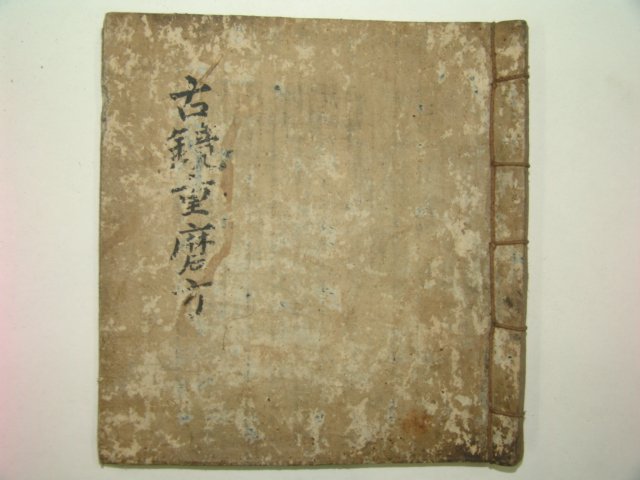 古鏡重磨方